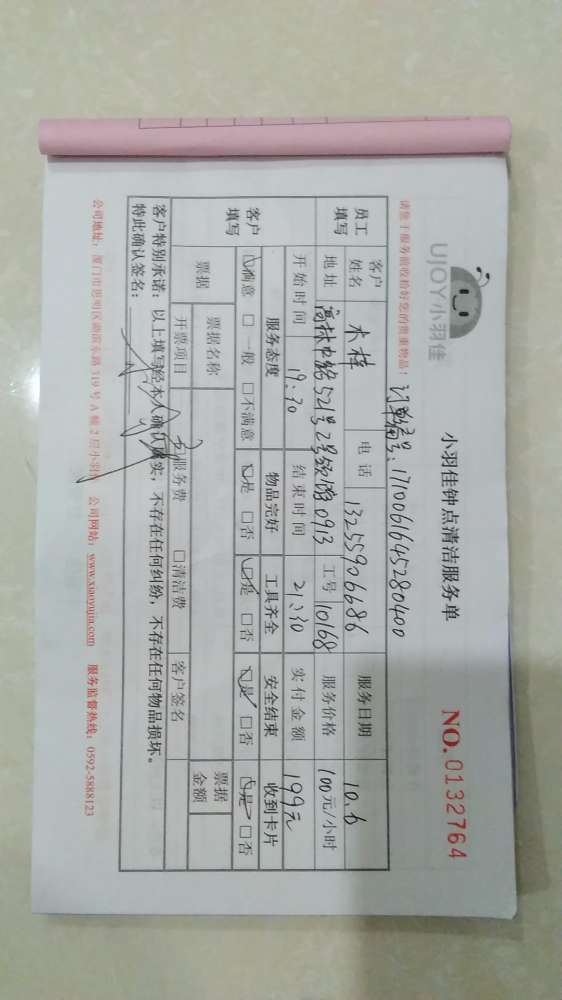 UJOY小羽佳
小羽佳钟点清洁服务单
NO.0132764
请您于服务前收检好您的贵重物品!
订单编号:1710061645280400
员工填写
客户姓名 木桂 电话 13255906686 服务日期 10.6
地址 高林中路521号2号领海0913 工号 10168 服务价格 100元/小时
开始时间 19:30 结束时间 21:30 实付金额 199元
客户填写
服务态度 物品完好 工具齐全 安全结束 收到卡片
满意 □一般 □不满意 是 □否 是 □否 是 □否 是 □否
票据 票据名称 票据金额
开票项目 服务费 □清洁费 客户签名
客户特别承诺:以上填写经本人确认属实,不存在任何纠纷,不存在任何物品损坏。
特此确认签名:
公司地址:厦门市思明区湖滨东路319号A幢2层小羽佳 公司网站:www.xiaoyujia.com 服务监督热线:0592-5888123